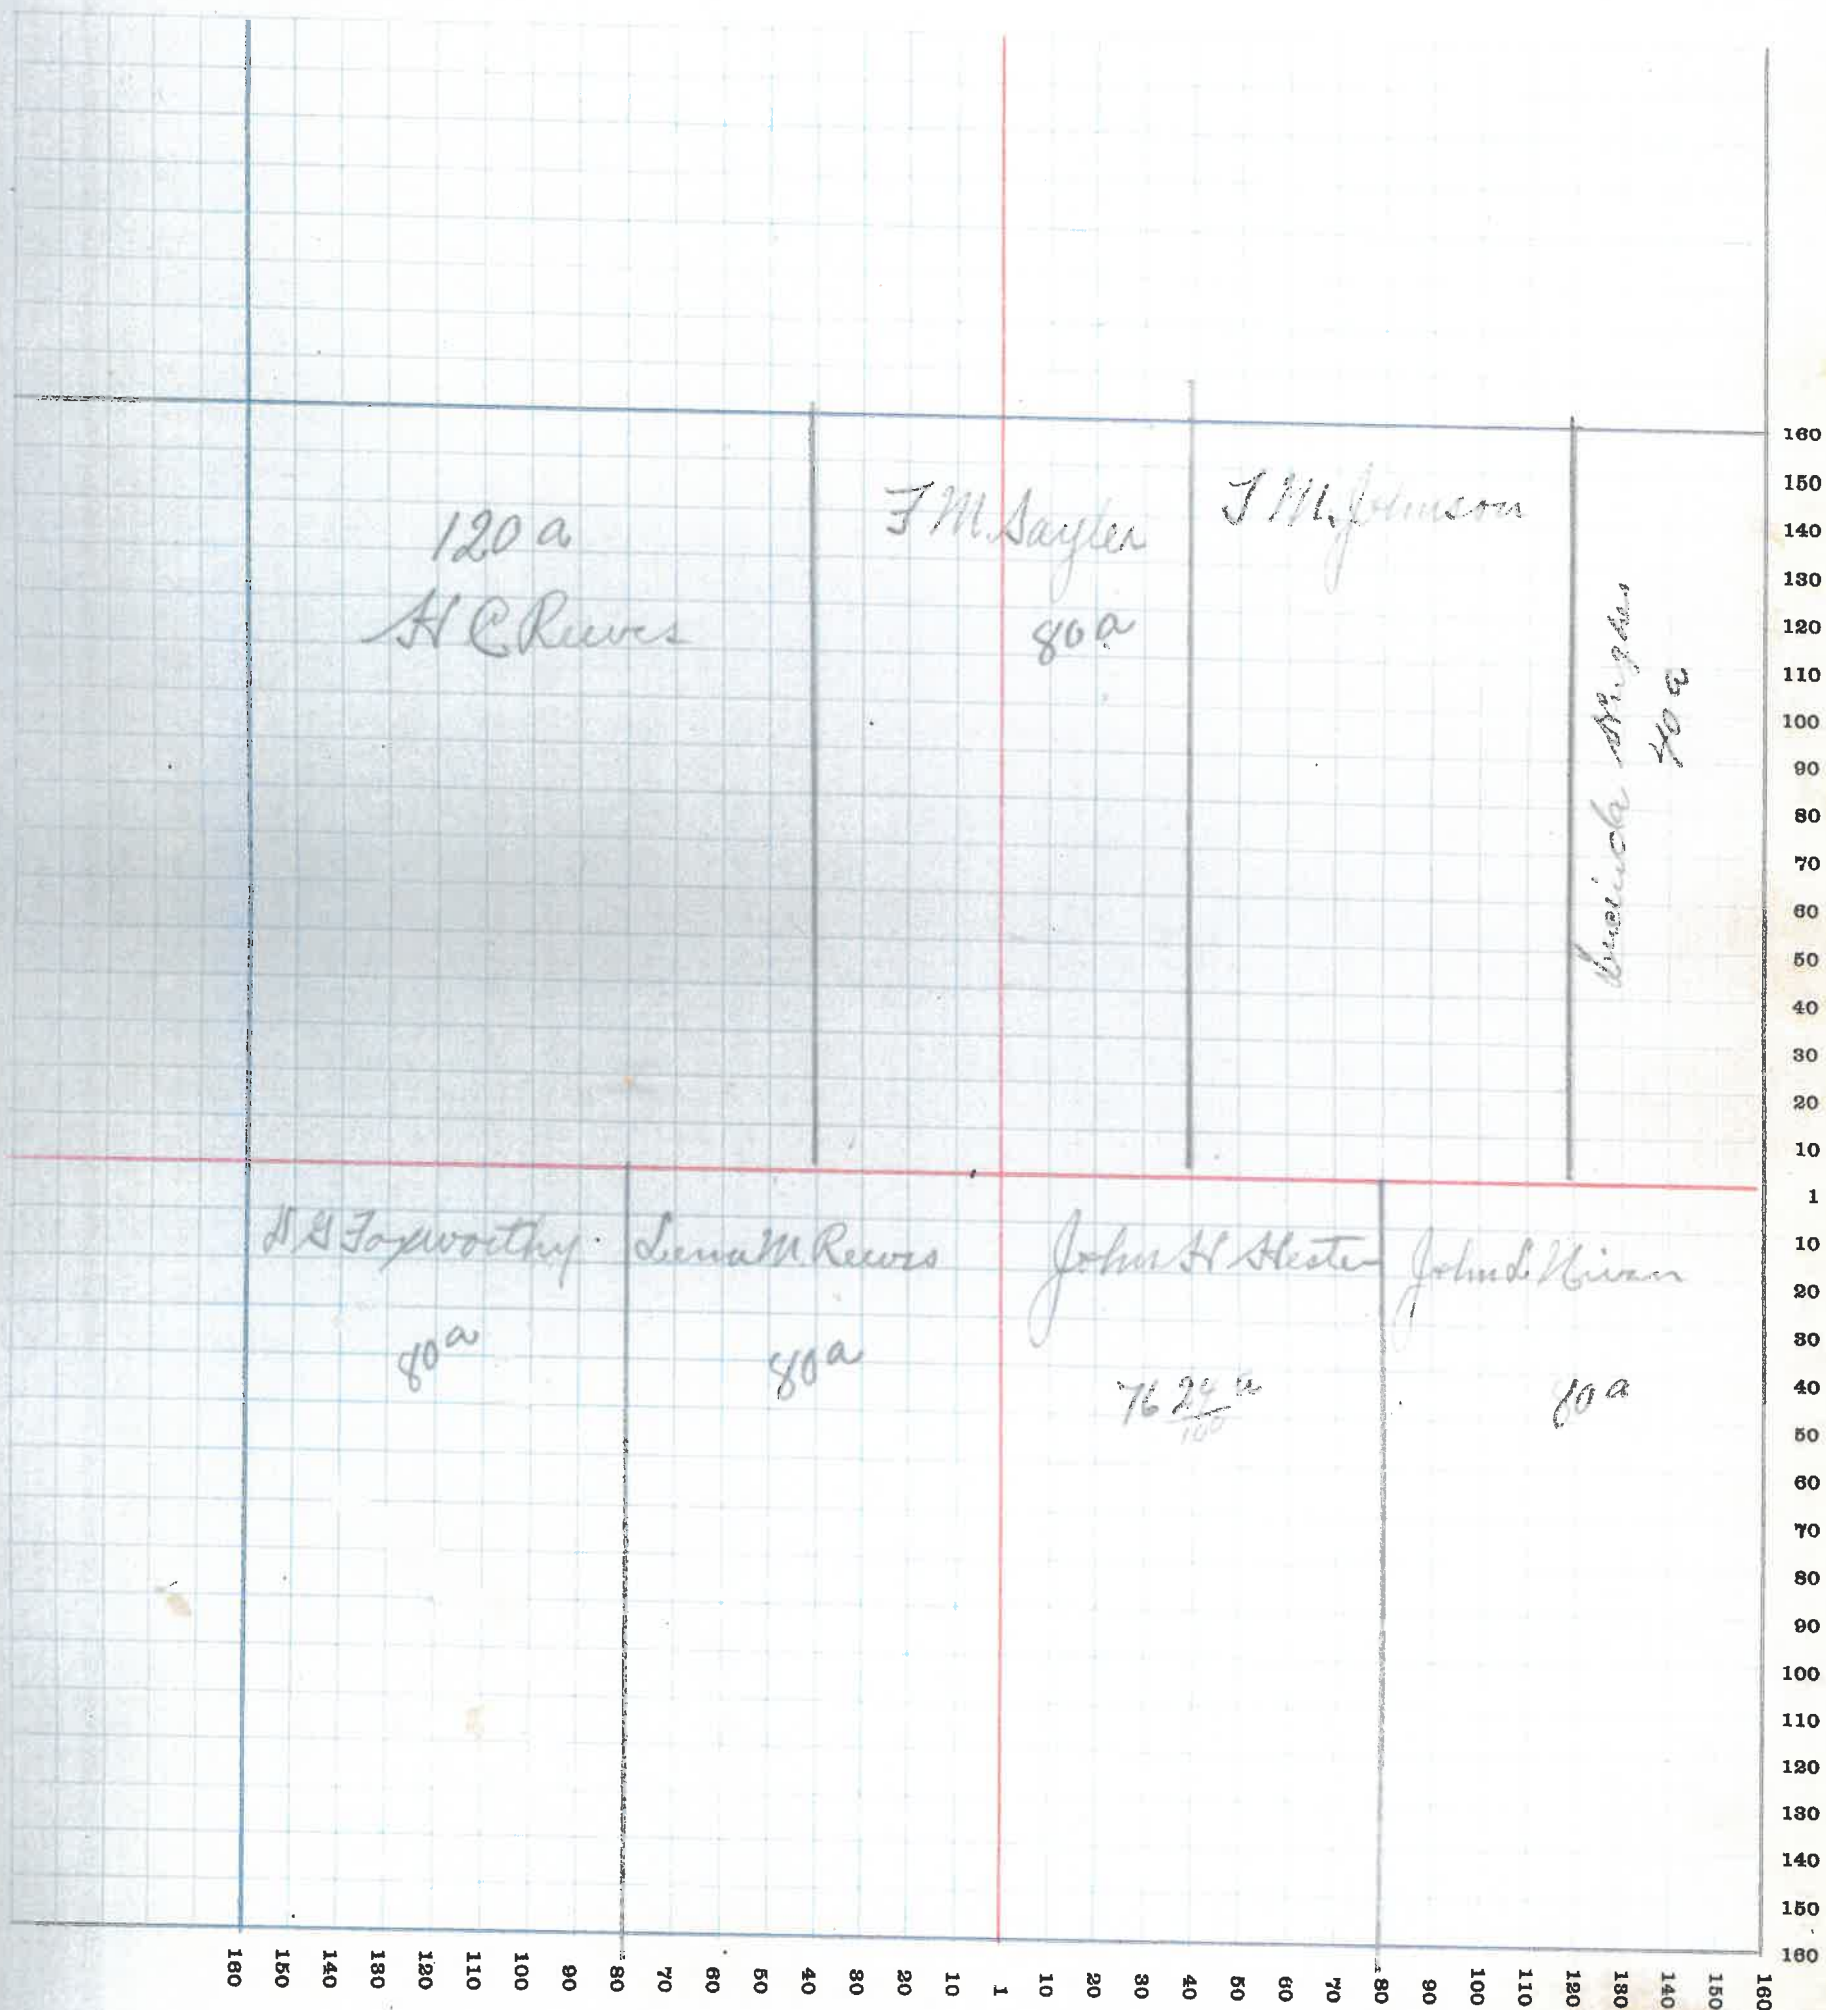 120 a
H C Reeves
F M. Sayler
80 a
J M. Johnson
40 a
Foxworthy
80 a
Lena M. Reeves
80 a
John H Hester
76 24/100 a
John L Nivan
80 a
160
150
140
130
120
110
100
90
80
70
60
50
40
30
20
10
1
10
20
30
40
50
60
70
80
90
100
110
120
130
140
150
160
160 150 140 130 120 110 100 90 80 70 60 50 40 30 20 10 1 10 20 30 40 50 60 70 80 90 100 110 120 130 140 150 160